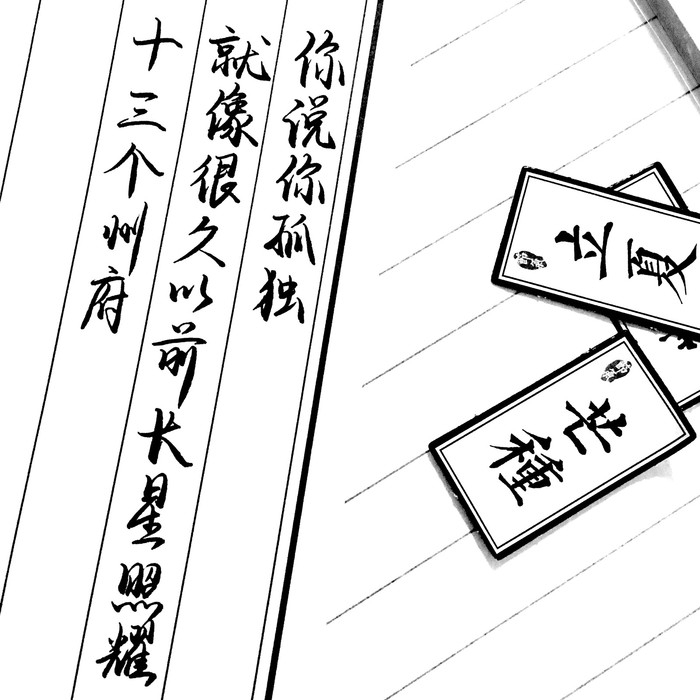 你说你孤独
就像很久以前长星照耀
十三个州府
立夏
芒種